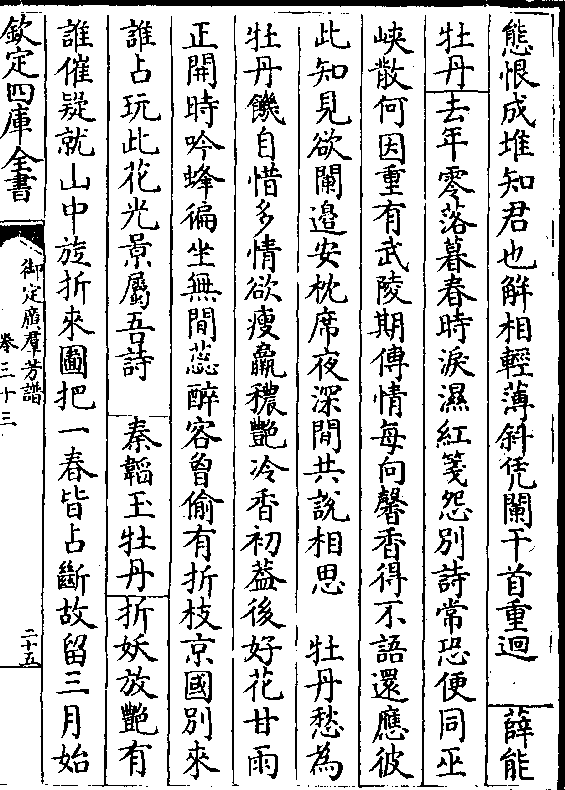 態恨成堆知君也解相輕薄斜凭闌干首重迴　薛能
牡丹去年零落暮春時淚濕紅箋怨別詩常恐便同巫
峽散何因重有武陵期傳情每向馨香得不語還應彼
此知見欲闌邉安枕席夜深閒共說相思　牡丹愁為
牡丹饑自惜多情欲瘦羸穠艷冷香初葢後好花甘雨
正開時吟蜂徧坐無閒蕊醉客曾偷有折枝京國別來
誰占玩此花光景屬吾詩　秦韜玉牡丹折妖放艷有
誰催疑就山中旋折來圖把一春皆占斷故留三月始
欽定四庫全書
御定廣羣芳譜
卷三十三
二十五